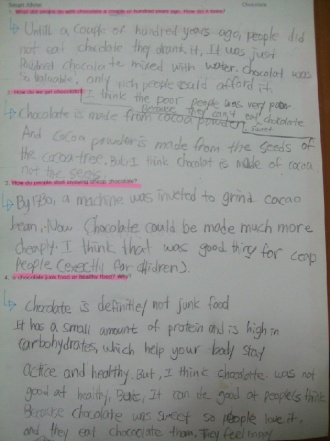 Target Ideas Chocolate
1. What did people do with chocolate a couple of hundred years ago. How did it taste?
Untill a couple of hundred years ago, people did
not eat chocolate they drank it, It was just
chocolate mixed with water. chocolat was
so valuable, only rich people could afford it.
I think the poor people was very poor
2. How do we get chocolate?
Because they can't eat chocolate
sweet
chocolate is made from cocoa powder,
And cocoa powder is made from the seeds of
the cocoa tree, But, I think chocolat is made of cocoa
not the seeds.
3. How do people start
By 1730, a machine was inveted to grind cacao
bean, Now Chocolate could be made much more
cheaply. I think that was good thing for
people (exectly for children).
4. Is chocolate junk food or healthy food? Why?
chorolate is definitley not junk food
It has a small amount of protein and is high in
carbohydrates, which help your body stay
active and healthy. But, I think chocolatte was not
good at healhy, It can be good at people's think
Because chocolate was sweet so people love it.
and they eat chococlate them, They feel